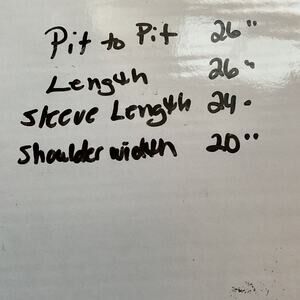 Pit to Pit 26"
Length 26"
Sleeve Length 24"
Shoulder width 20"